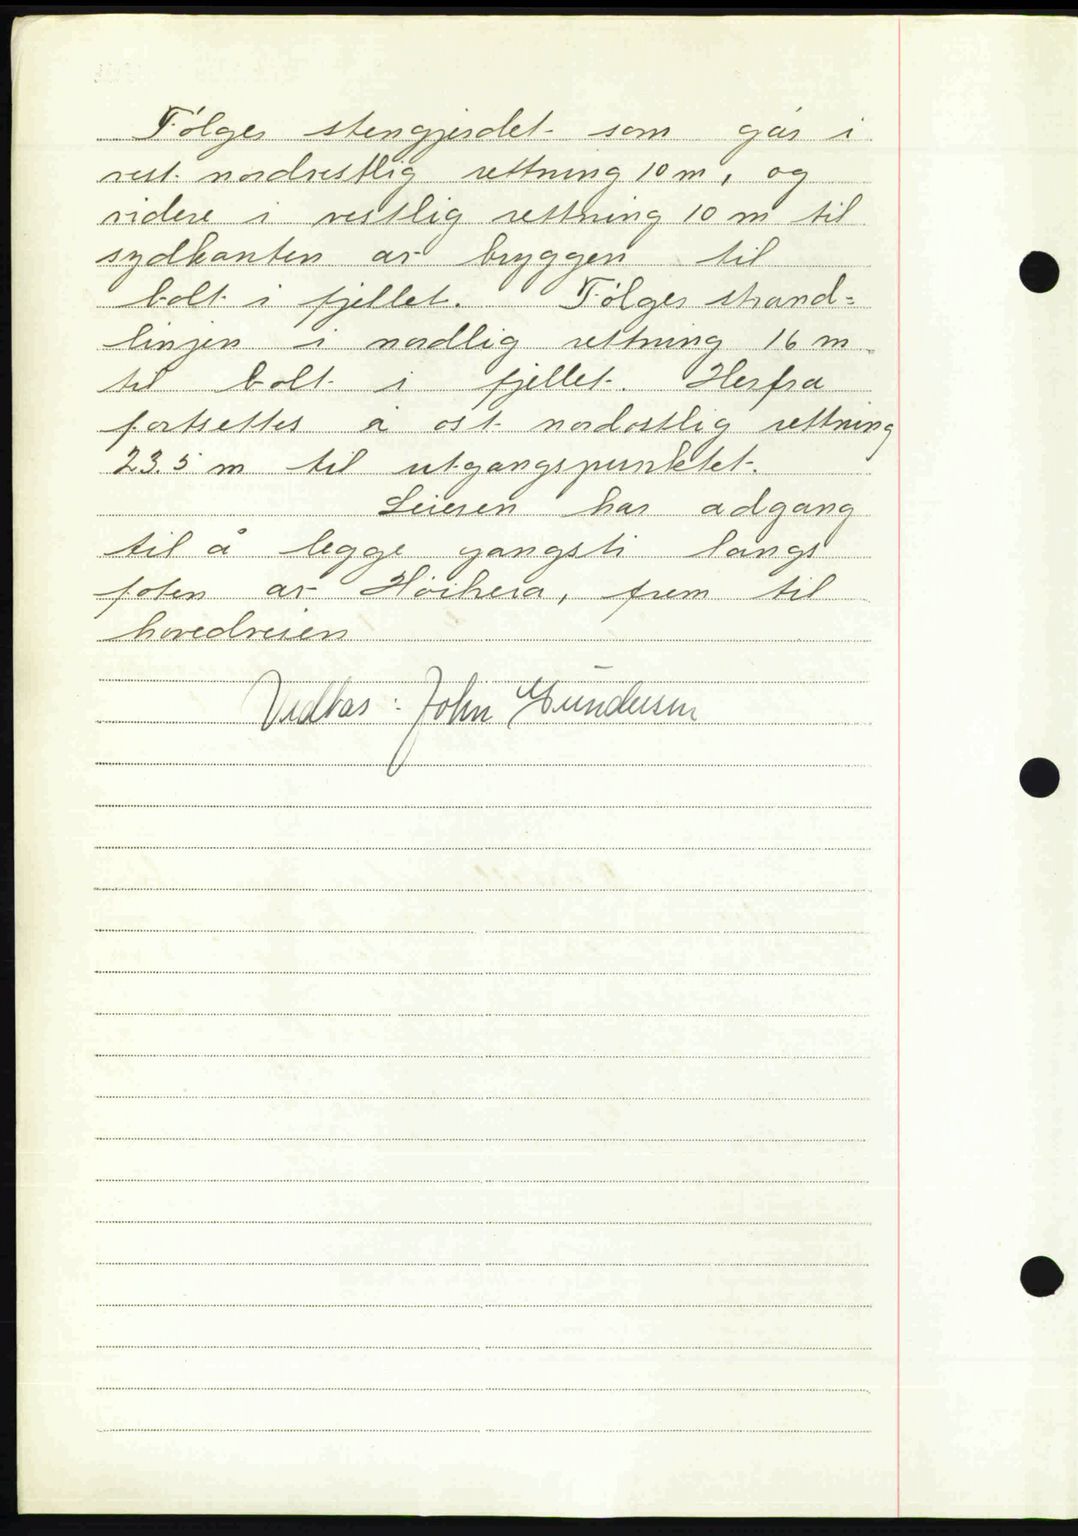 Følges stengjerdet som går i
vest nordvestlig rettning 10 m, og
videre i vestlig rettning 10 m til
sydkanten av bryggen til
bolt i fjellet. Følges strand=
linjen i nordlig rettning 16 m
til bolt i fjellet. Herfra
fortsettes i ost nordostlig rettning
23.5 m til utgangspunktet.
Leieren har adgang
til å legge gangsti langs
foten av Høiheia, frem til
hovedveien
Vedtas: John Gundersen